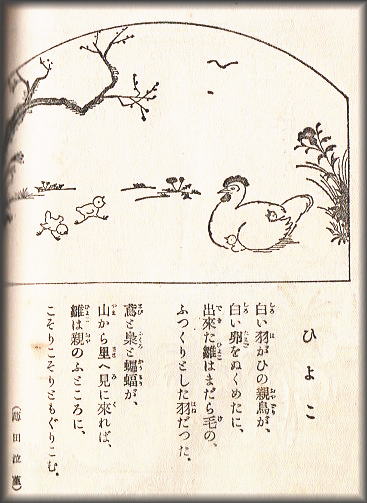 ひよこ
白い羽がひの親鳥が、
白い卵をぬくめたに、
出來た雛はまだら毛の、
ふつくりとした羽だつた。
鳶と梟と蝙蝠が、
山から里へ見に來れば、
雛は親のふところに、
こそりこそりともぐりこむ。
田泣菫